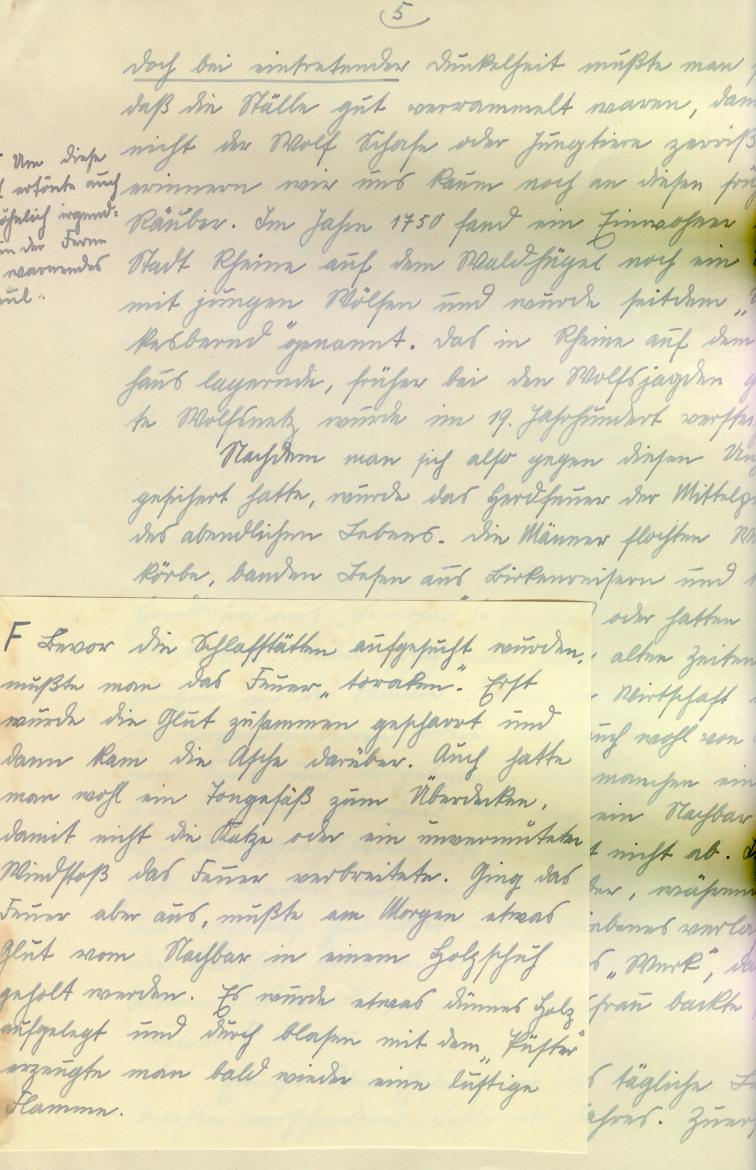 5
doch bei eintretender Dunkelheit mußte man
daß die Ställe gut verrammelt waren, dam
nicht der Wolf Schafe oder Jungtiere zerriß
erinnern wir uns kaum noch an diesen frü
Räuber. Im Jahre 1750 fand ein Einwohner
Stadt Rheine auf dem Waldhügel noch ein
mit jungen Wölfen und wurde seitdem „
kesbernd" genannt. Das in Rheine auf dem
haus lagernde, früher bei den Wolfsjagden g
te Wolfsnetz wurde im 19. Jahrhundert verstei
Nachdem man sich also gegen diesen Un
gesichert hatte, wurde das Herdfeuer der Mittelp
des abendlichen Lebens. Die Männer flochten W
körbe, banden Besen aus Birkenreisern und
Um diese
ertönte auch
öhnlich irgend-
in der Ferne
warnendes
ul.
F Bevor die Schlafstätten aufgesucht wurden,
mußte man das Feuer „toraken". Erst
wurde die Glut zusammen gescharrt und
dann kam die Asche darüber. Auch hatte
man wohl ein Tongefäß zum Überdecken,
damit nicht die Katze oder ein unvermuteter
Windstoß das Feuer verbreitete. Ging das
Feuer aber aus, mußte am Morgen etwas
Glut vom Nachbar in einem Holzschuh
geholt werden. Es wurde etwas dünnes Holz
aufgelegt und durch blasen mit dem „Püster"
erzeugte man bald wieder eine lustige
Flamme.
oder hatten
alten Zeiten
Wirtschaft
uch wohl von
manchen ein
ein Nachbar
t nicht ab.
der, währen
abenes verla
s „Werk", da
sfrau backte
s tägliche L
ahres. Zuer